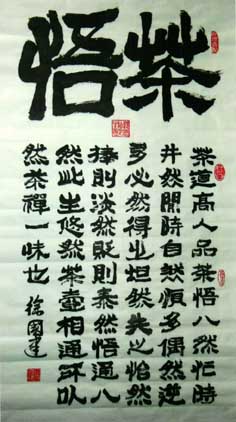 茶悟
茶道高人品茶悟八然忙時
井然閒時自然順多偶然逆
多必然得之坦然失之怡然
捧則淡然貶則泰然悟通八
然此生悠然茶壺相通所以
然茶禪一味也
徐國建